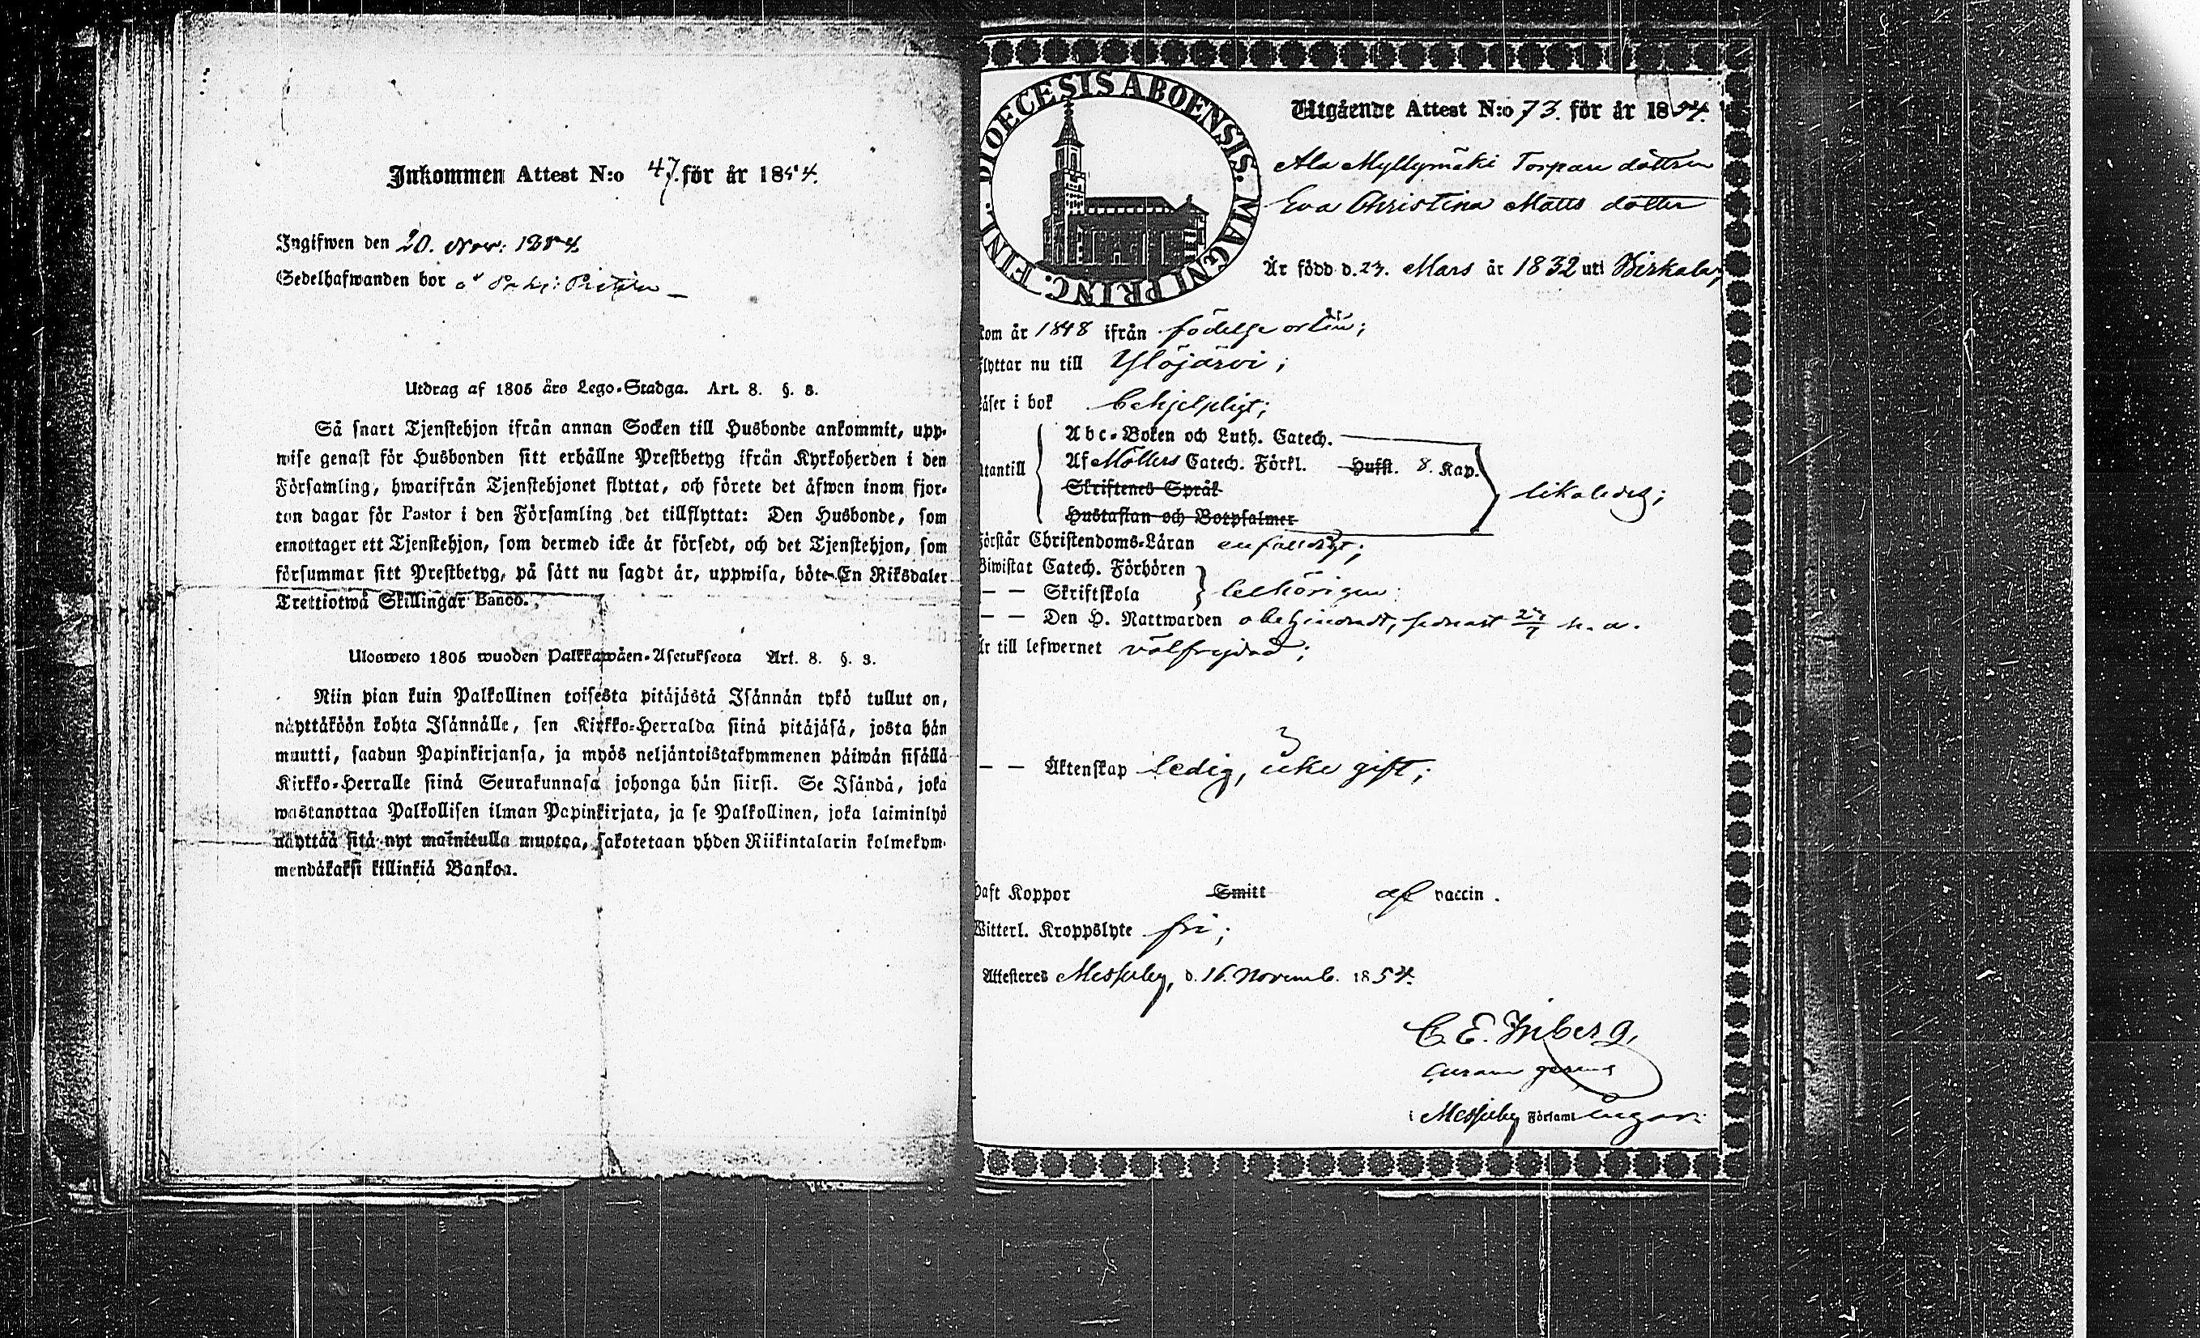 Inkommen Attest N:o 47. för år 1854.
Ingifwen den 20. Nov: 1854
Sedelhafwanden bor
Utdrag af 1805 års Lego-Stadga. Art. 8. §. 3.
Så snart Tjenstehjon ifrån annan Socken till Husbonde ankommit, upp-
wise genast för Husbonden sitt erhållne Prestbetyg ifrån Kyrkoherden i den
Församling, hwarifrån Tjenstehjonet flyttat, och förete det äfwen inom fjor-
ton dagar för Pastor i den Församling det tillflyttat: Den Husbonde, som
emottager ett Tjenstehjon, som dermed icke är försedt, och det Tjenstehjon, som
försummar sitt Prestbetyg, på sätt nu sagdt är, uppwisa, böte En Riksdaler
Trettiotwå Skillingar Banco.
Ulosweto 1805 wuoden Palkkawäen-Asetuksesta Art. 8. §. 3.
Niin pian kuin Palkollinen toisesta pitäjästä Isännän tykö tullut on,
näyttäköön kohta Isännälle, sen Kirkko-Herralda siinä pitäjäsä, josta hän
muutti, saadun Papinkirjansa, ja myös neljäntoistakymmenen päiwän sisällä
Kirkko-Herralle siinä Seurakunnasa johonga hän siirsi. Se Isändä, joka
wastanottaa Palkollisen ilman Papinkirjata, ja se Palkollinen, joka laiminlyö
näyttää sitä nyt mainitulla muotoa, sakotetaan yhden Riikintalarin kolmekym-
mendäkaksi killinkiä Bankoa.
DIOECESIS ABOENSIS. MAGNI PRINC. FINL.
Utgående Attest N:o 73. för år 1854.
Ala Myllymäki Torpare dottren
Eva Christina Matts dotter
Är född d. 27. Mars år 1832 uti Birkala,
kom år 1848 ifrån födelse orten;
flyttar nu till Ylöjärvi;
läser i bok behjelpligt;
Abc-Boken och Luth. Catech.
utantill Af Möllers Catech. Förkl. Hufst. 8. Kap.
Skriftenes Språk
Hustaflan och Botpsalmer
likaledes;
förstår Christendoms-Läran enfaldigt;
Biwistat Catech. Förhören
— — Skriftskola behörigen;
— — Den H. Nattwarden obehindradt, senast h. a.
Är till lefwernet välfrejdad;
— — Äktenskap ledig, icke gift;
haft Koppor Smitt af vaccin.
Witterl. Kroppslyte fri;
Attesteres Messuby, d. 16. Novemb. 1854.
C. E. Inberg,
curam gerens
i Messuby Församlingar.